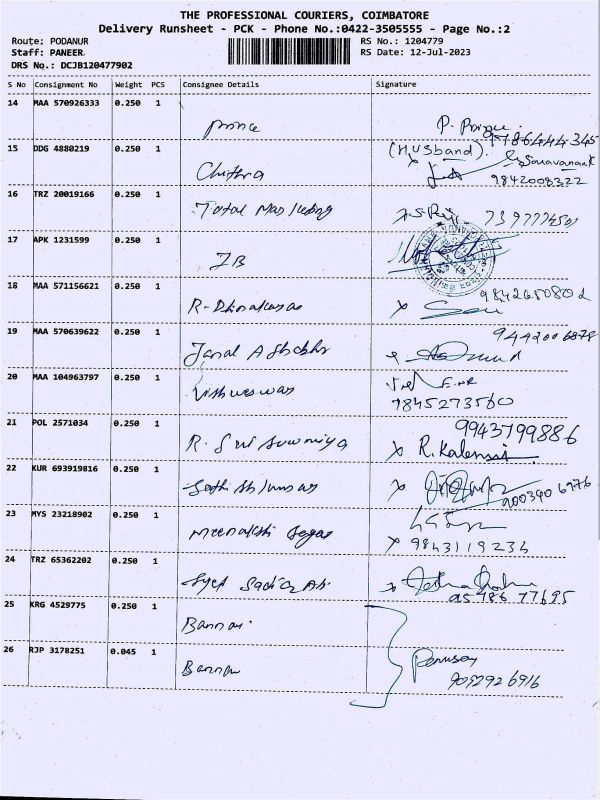 THE PROFESSIONAL COURIERS, COIMBATORE
Delivery Runsheet - PCK - Phone No.:0422-3505555 - Page No.:2
Route: PODANUR RS No.: 1204779
Staff: PANEER. RS Date: 12-Jul-2023
DRS No.: DCJB120477902
S No Consignment No Weight PCS Consignee Details Signature
14 MAA 570926333 0.250 1 Prince P. Prince
15 DDG 4880219 0.250 1 Chithra (Husband). Saravanan K
9842008322
16 TRZ 20019166 0.250 1 Total Marketing
17 APK 1231599 0.250 1 IB
18 MAA 571156621 0.250 1 R-Dhinakaran 9842650802
19 MAA 570639622 0.250 1 9442006878
20 MAA 104963797 0.250 1 Vishweswar
7845273560
21 POL 2571034 0.250 1 R. 9943799886
R. Kalaiselvi
22 KUR 693919816 0.250 1 9003906976
23 MYS 23218902 0.250 1 Meenakshi
9843119234
24 TRZ 65362202 0.250 1 Syed Sadiq Ali
9578677695
25 KRG 4529775 0.250 1 Bannari
26 RJP 3178251 0.045 1 Bannari
9092926916